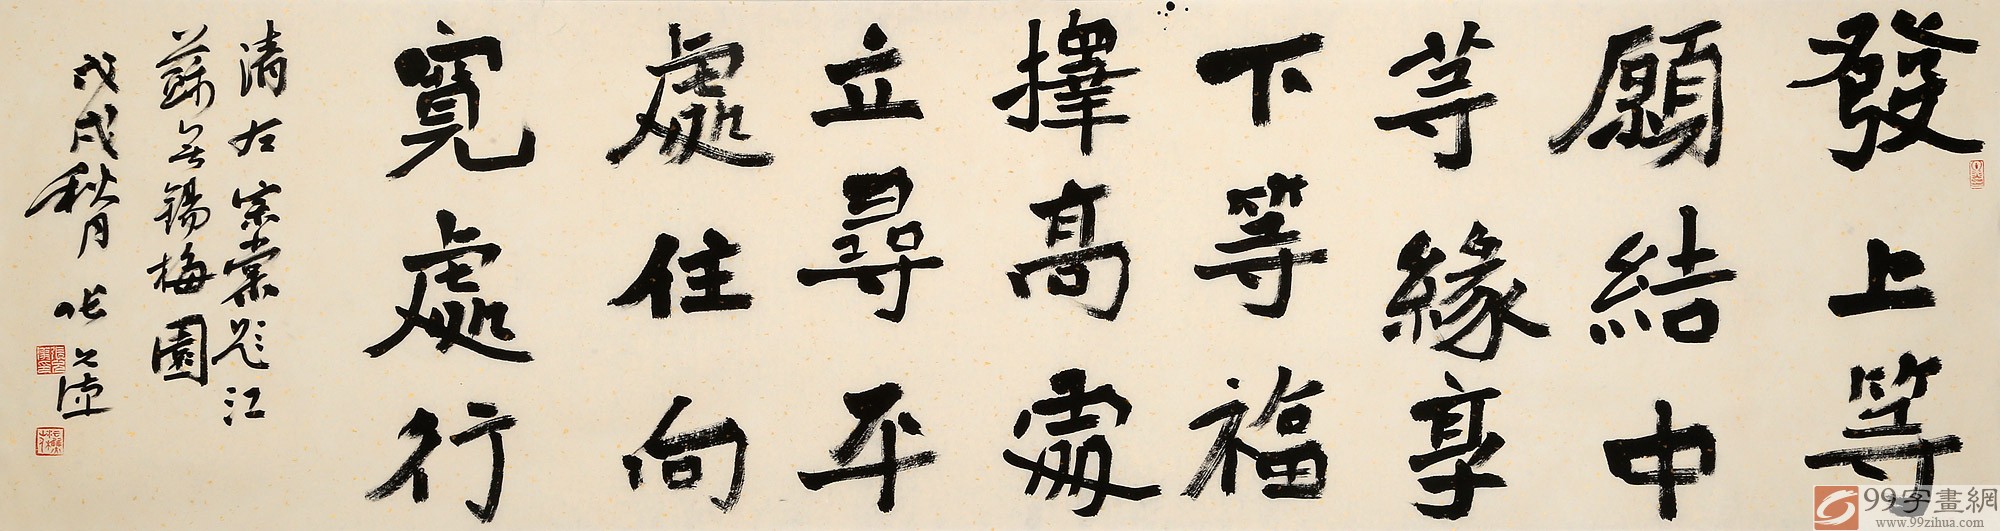 發上等
願結中
等緣享
下等福
擇高處
立尋平
處住向
寬處行
清左宗棠題江
蘇無錫梅園
戊戌秋月張
99字畫網
www.99zihua.com